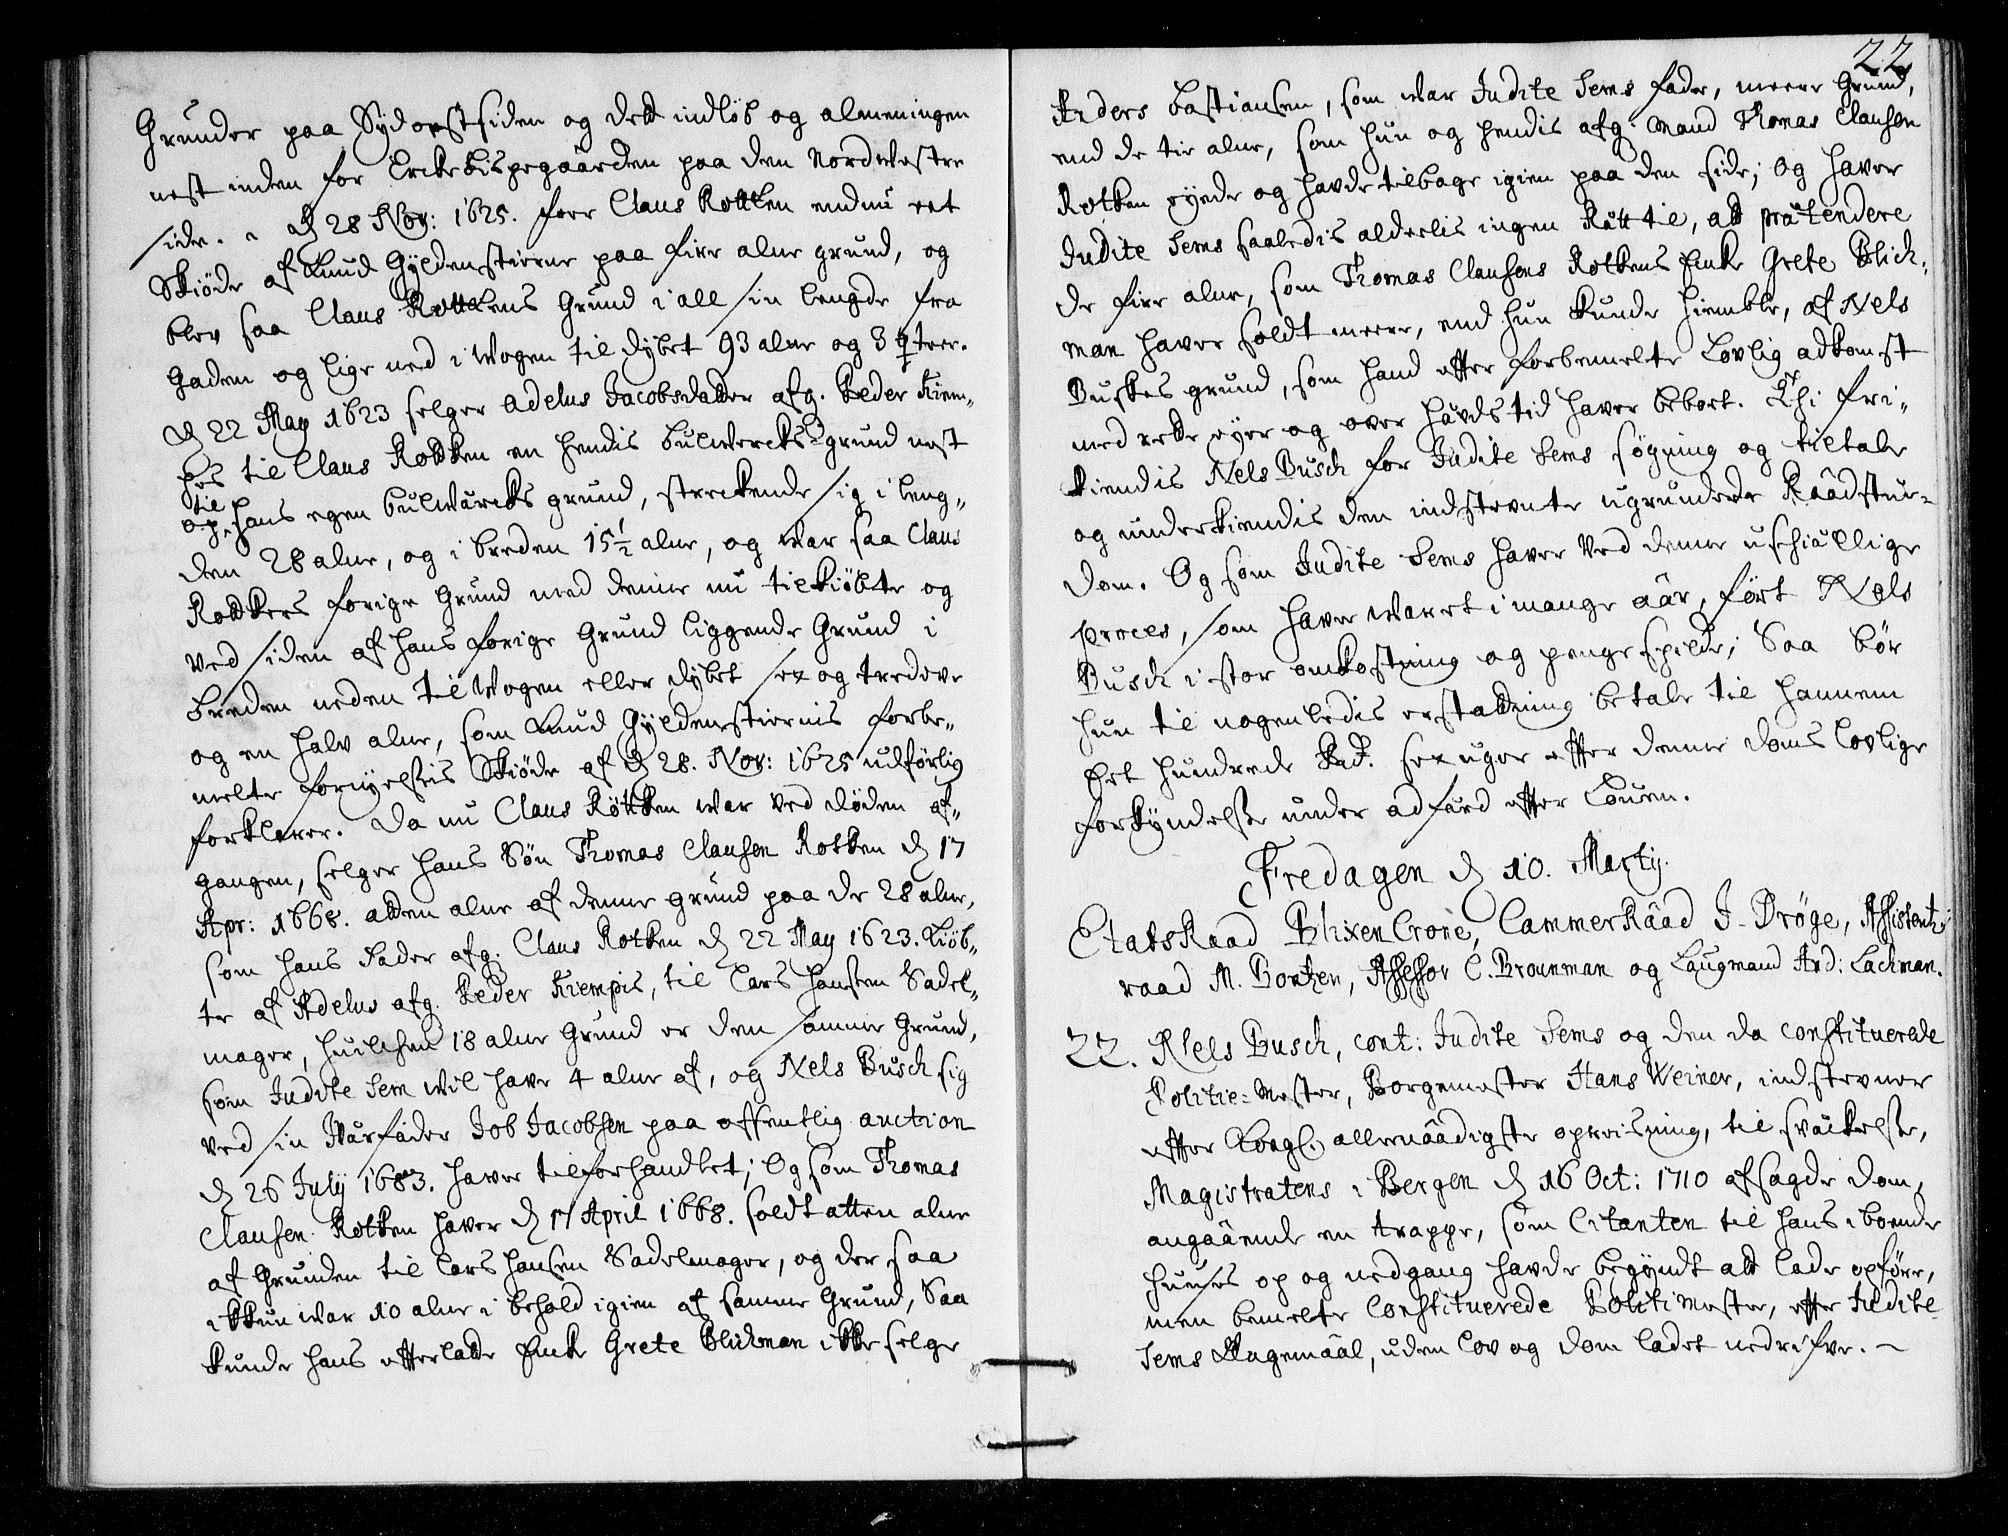 Grunder paa Sydoestsiden og dett indløb og almeningen
nest inden for Erckebispegaarden paa den Nordwestre
side. d 28 Nov: 1625. foer Claus Rottken endnu et
Skiøde af Knud Gyldenstierne paa fire alne grund, og
blev saa Claus Rottkens Grund i all sin lengde fra
Gaden og lige ned i Wogen til dybet 93 alne og 3 qteer.
d 22 May 1623 selger Adelus Jacobsdatter afg. Peder Kiem-
pes til Claus Rottken en hendis bulwercks-grund nest
til
op hans egen bulwärcks grund, streckende sig i leng-
den 28 alne, og i breden 15½ alne, og war saa Claus
Rottkens forige Grund med denne nu tilkiøbte og
ved siden af hans forige Grund liggende Grund i
breden neden til Wogen eller dybet sex og tredeve
og en halv alne, som Knud Gyldenstiernis forbe-
melte fornyelsis Skiøde af d 28. Nov: 1625 udførlig
forklarer. Da nu Claus Røttken war ved døden af-
gangen, selger hans Søn Thomas Clausen Rotken d 17
Apr: 1668. atten alne af denne grund paa de 28 alne,
som hans Fader afg. Claus Rotken d 22 May 1623. kiøb-
te af Adelus afg. Peder Kiempis, til Lars Hansen Sadel-
mager, huilchen 18 alne Grund er den samme Grund,
som Judite Sem wil have 4 alne af, og Nels Busch sig
ved sin Wärfader Job Jacobsen paa offentlig auction
d 26 July 1683. haver tilforhandlet; Og som Thomas
Clausen Rotken haver d 17 April 1668. soldt atten alne
af Grunden til Lars Hansen Sadelmager, og der saa
ikkun war 10 alne i behold igien af samme Grund, Saa
kunde hans efterlatte Enke Grete Blickman ikke selge
22
Anders Bastiansen, som war Judite Sems Fader, meere Grund,
end de tie alne, som hun og hendis afg. Mand Thomas Clausen
Rotken eyede og havde tilbage igien paa den side; og haver
Judite Sems saaledis alderlis ingen Rätt til, att prætendere
de fire alne, som Thomas Clausens Rotkens Enke Grete Blick-
man haver soldt meere, end hun kunde hiemble, af Nels
Buskes grund, som hand efter forbemelte Lovlig adkomst
med rette eyer og over hävds tid haver beboet. Thi fri-
kiendis Nels Busch for Judite Sems søgning og tiltale
og underkiendis den indstevnte ugrundede Raadstue-
dom. Og som Judite Sems haver ved denne uskiällige
proces, som haver waret i mange aar, ført Nels
Busch i stor omkostning og penge spilde; Saa bør
hun til nogenledis erstatning betale til hannem
Eet hundrede Rd. sex uger efter denne doms lovlige
forkyndelse under adfärd efter Louen.
Fredagen d 10. Martij.
EtatsRaad BlixenCrone, CammerRaad J. Drøge, Assistentz-
raad M. Bortzen, Assessor C. Brounman og Laugmand And: Lachman.
22. Niels Busch, cont: Judite Sems og den da constituerede
Politie-Mester, Borgemester Hans Weiner, indstevner
efter Kongl. allernaadigste opreisning, til sväckelse,
Magistratens i Bergen d 16 Oct: 1710 afsagde dom,
angaaende en trappe, som Citanten til hans iboende
huuses op og nedgang havde begyndt att lade opføre,
men bemelte Constituerede Politimester, efter Judite
Sems Klagemaal, uden lov og dom ladet nedrifve. –